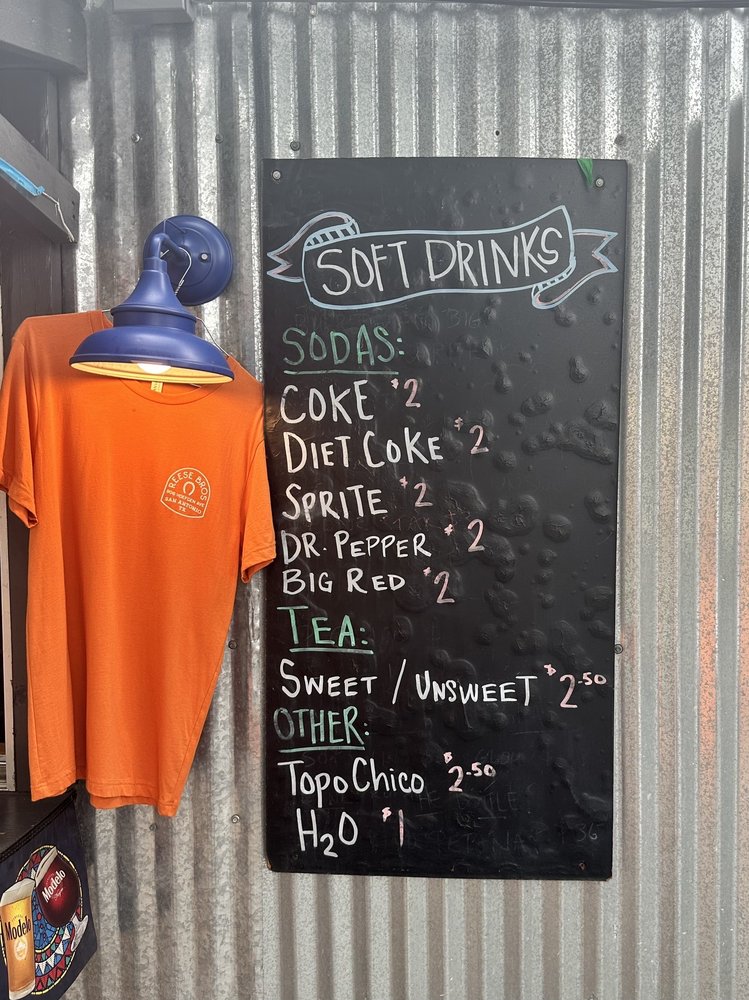 SOFT DRINKS
SODAS:
COKE $2
DIET COKE $2
SPRITE $2
DR. PEPPER $2
BIG RED $2
TEA:
SWEET / UNSWEET $2.50
OTHER:
TOPO CHICO $2.50
H2O $1
REESE BROS
906 HOEFGEN AVE
SAN ANTONIO
TX
Modelo
Modelo